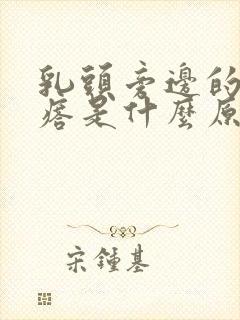 乳頭旁邊的
痞是什麼原
宋鍾基